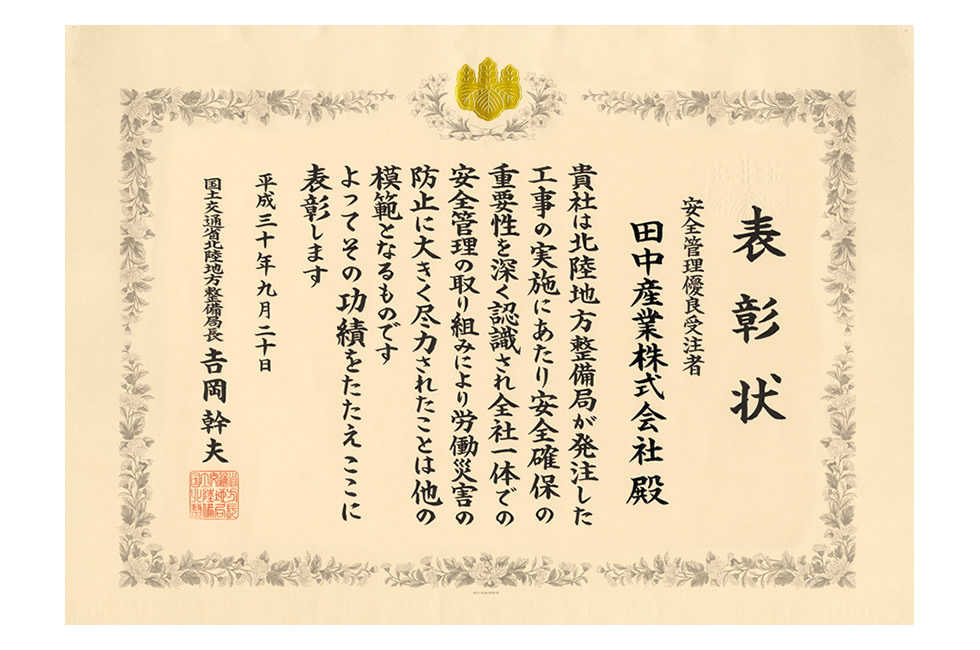 表彰状
安全管理優良受注者
田中産業株式会社殿
貴社は北陸地方整備局が発注した
工事の実施にあたり安全確保の
重要性を深く認識され全社一体での
安全管理の取り組みにより労働災害の
防止に大きく尽力されたことは他の
模範となるものです
よってその功績をたたえここに
表彰します
平成三十年九月二十日
国土交通省北陸地方整備局長 吉岡幹夫